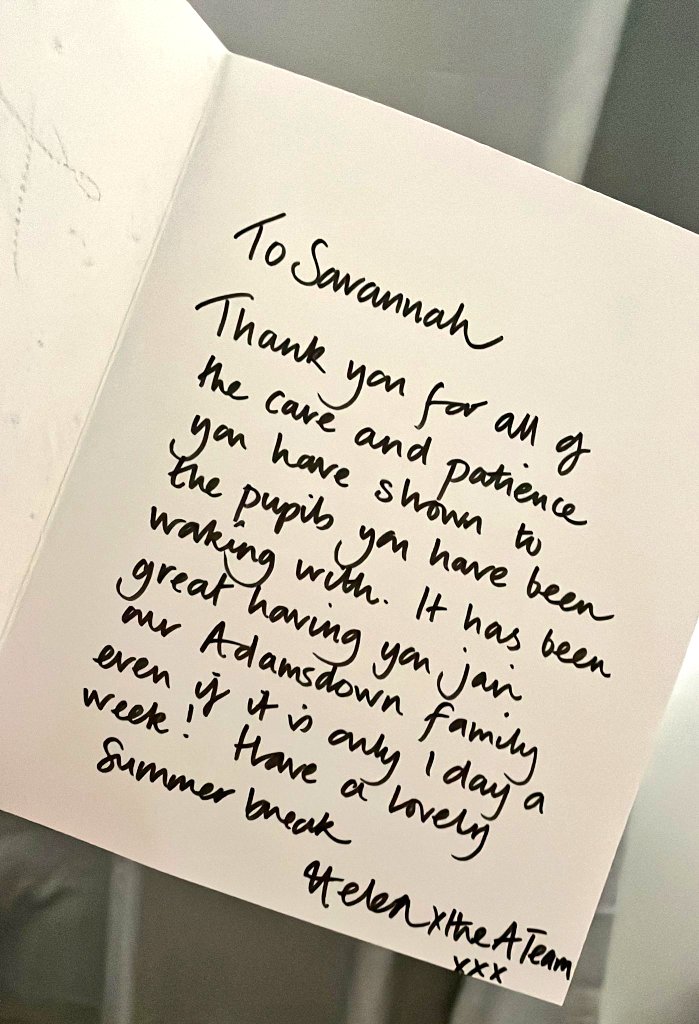 To Savannah
Thank you for all of
the care and patience
you have shown to
the pupils you have been
working with. It has been
great having you join
our Adamsdown family
even if it is only 1 day a
week! Have a lovely
Summer break
Helen x the A Team
xxx